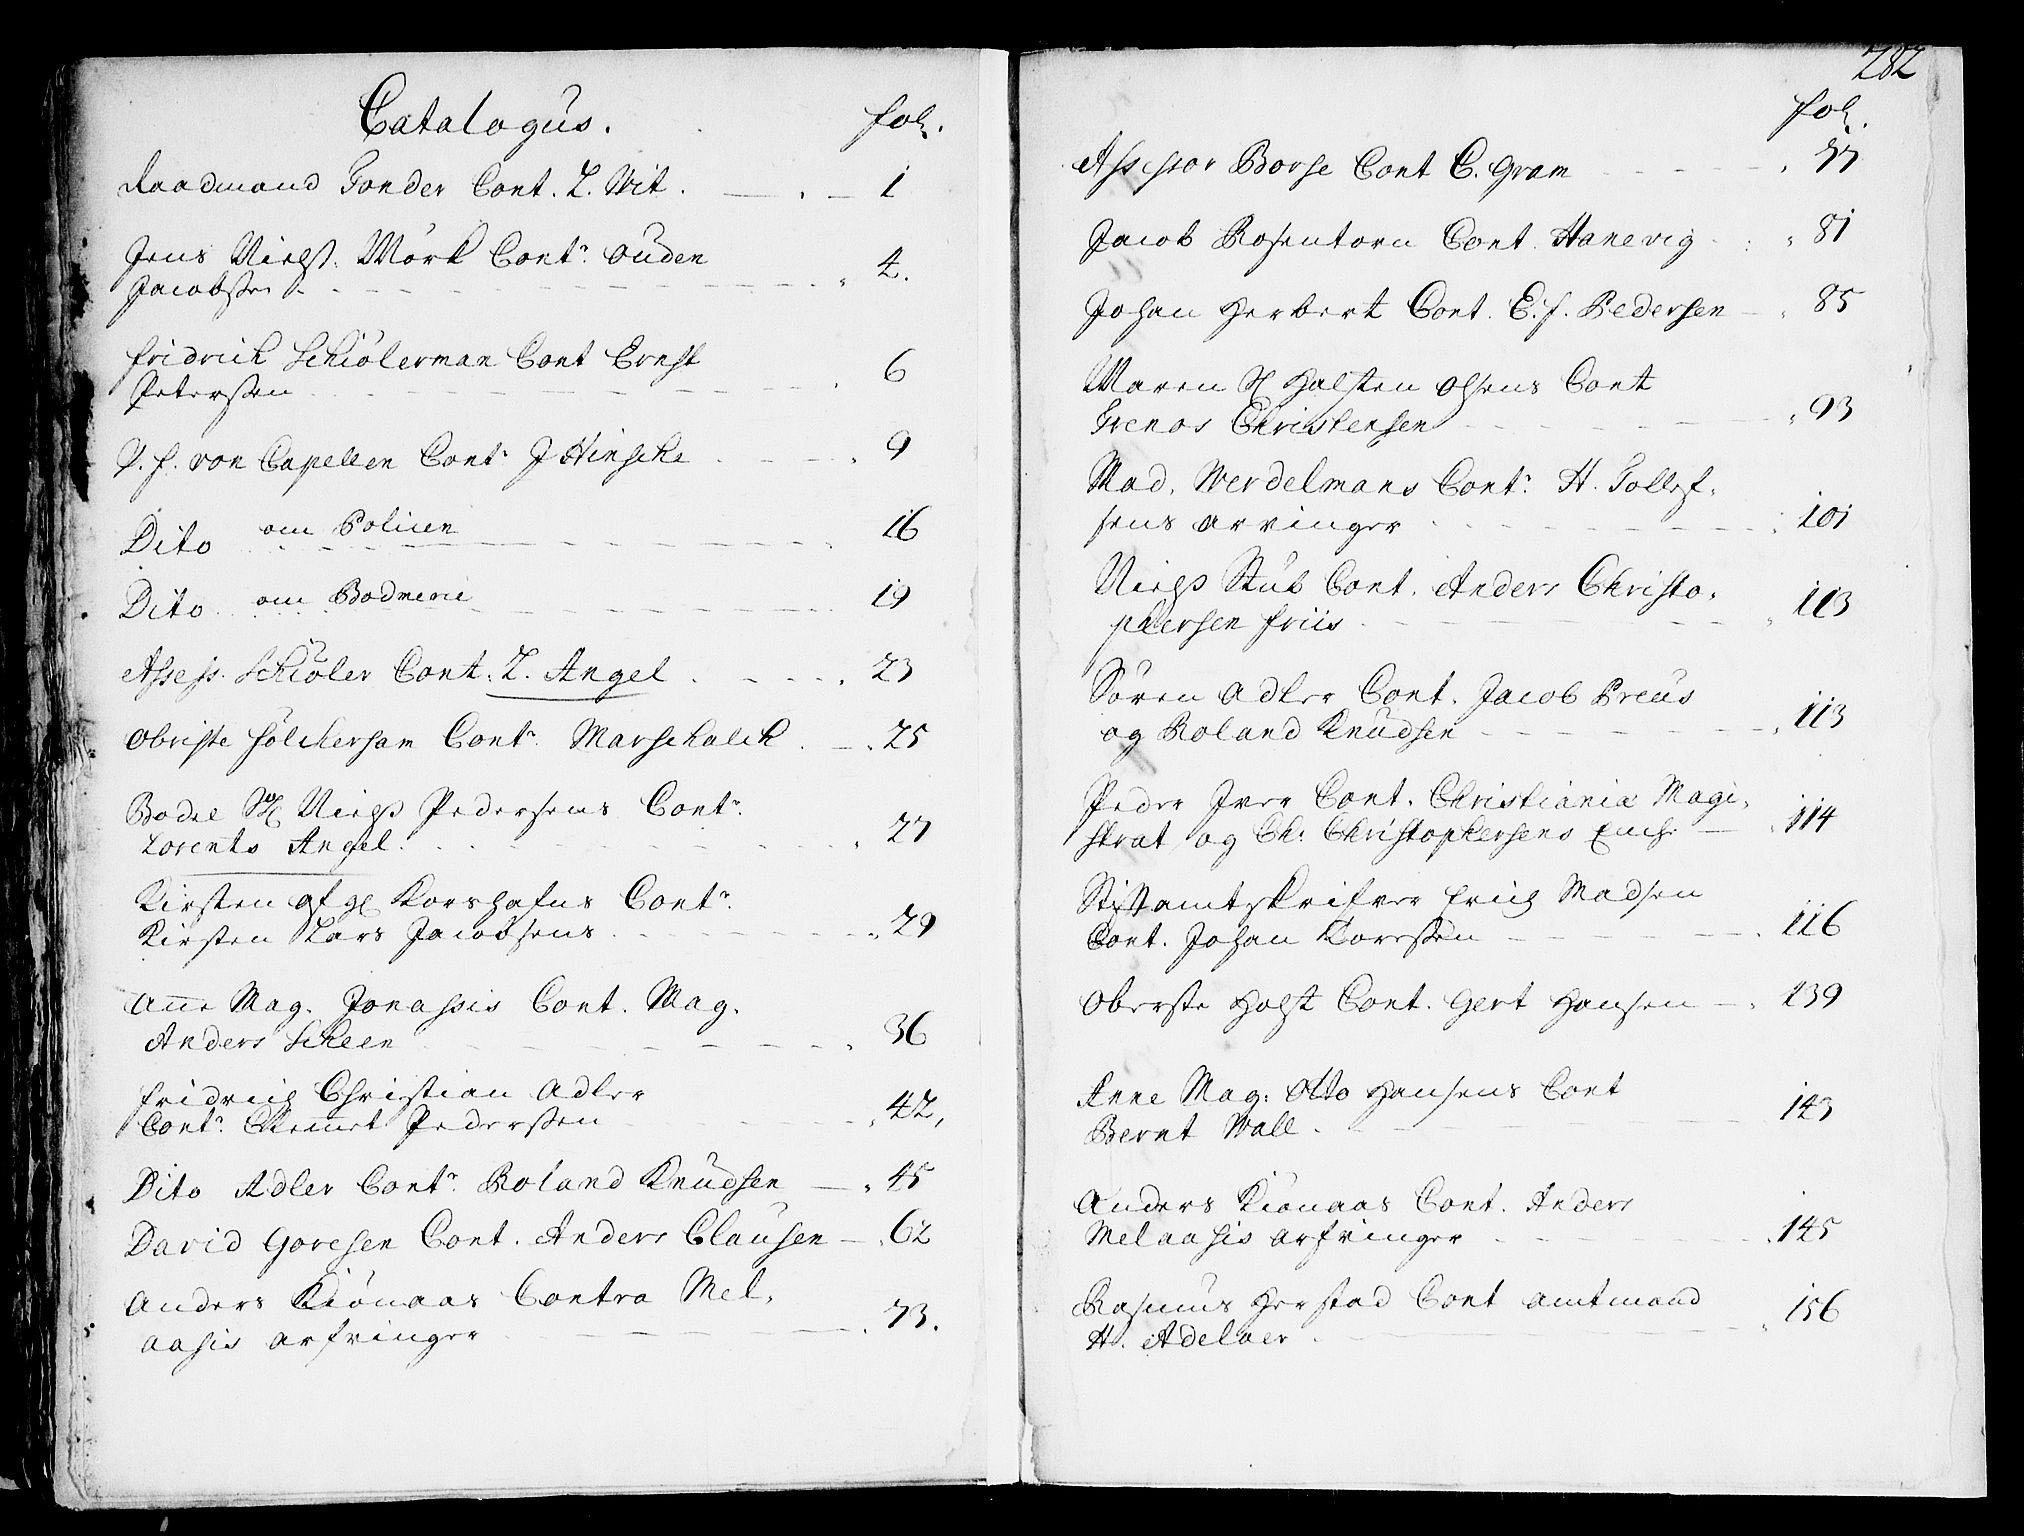 Catalogus. fol.
Raadmand Tonder Cont. L. Wit. 1
Jens Nielss. Mörk Contr. Ouden
Jacobssen 4.
Fridrich Schiölerman Cont Ernst
Peterssen 6
von Capellen Contr J Hinscke 9
Dito om Policen 16
Dito om Bodmerie 19
Assess. Schiöler Cont. L. Angel 23
Obriste Fölckersam Contr. Marschalck 25
Bodel Sl Nielss Pedersens Contr.
Lorents Angel. 27
Kirsten afg Korshafns Contr.
Kirsten Lars Jacobsens 29
Anne Mag. Jonassis Cont. Mag.
Anders Scheen 36
Fridrich Christian Adler
Contr. Clemmet Pederssen 42,
Dito Adler Contr. Roland Knudsen 45
David Goresen Cont. Anders Clausen 62
Anders Kiönaas Contra Mel,
aasis arfvinger 73.
282
fol.
Assessor Borse Cont C. Gram 77
Jacob Rosentorn Cont. Hanevig 81
Johan Herbert Cont. E. f. Pedersen 85
Maren Sl Halsten Olsens Cont
Trenos Christensen 93
Mad. Werdelmans Contr. H. Tollef,
sens arvinger 101
Nielss Stub Cont. Anders Christo,
phersen Friis 113
Sören Adler Cont. Jacob Preus
og Roland Knudsen 113
Peder Iver Cont. Christiania Magi,
strat og Ch: Christophersens Enche 114
Stiftamtskrifver Erich Madsen
Cont. Johan Koressen 116
Oberste Holst Cont. Gert Hansen 139
Anne Mag: Otto Hansens Cont
Bernt Wall. 143
Anders Kiönaas Cont. Anders
Melaasis arfvinger 145
Rasmus Herstad Cont amtmand
H. Adelaer 156